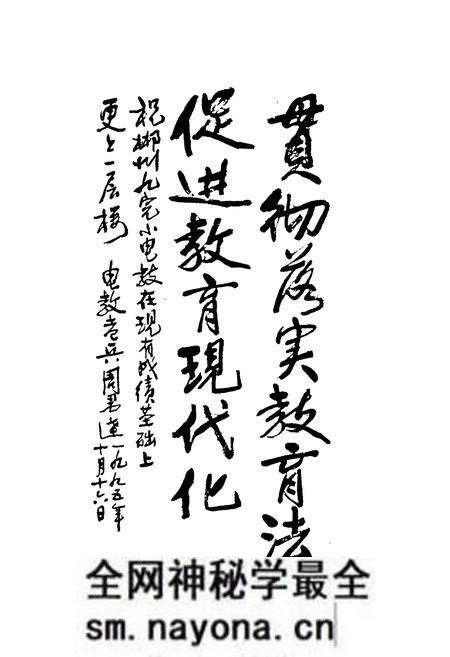 貫彻落实教育法
促进教育現代化
祝郴州九完小电教在現有成绩基础上
更上一层楼 电教老兵周 一九九五年
十月十六日
全网神秘学最全
sm.nayona.cn